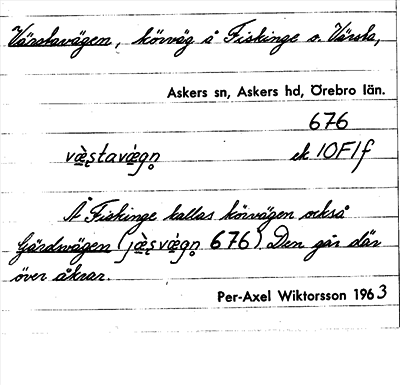 Värstavägen, körväg å Fiskinge o. Värsta,
Askers sn, Askers hd, Örebro län.
676
væ̀stavæ̀gn̥ ek 10F1f
Å Fiskinge kallas körvägen också
Gärdsvägen (jæ̀svæ̀gn̥ 676). Den går där
över åkrar.
Per-Axel Wiktorsson 1963